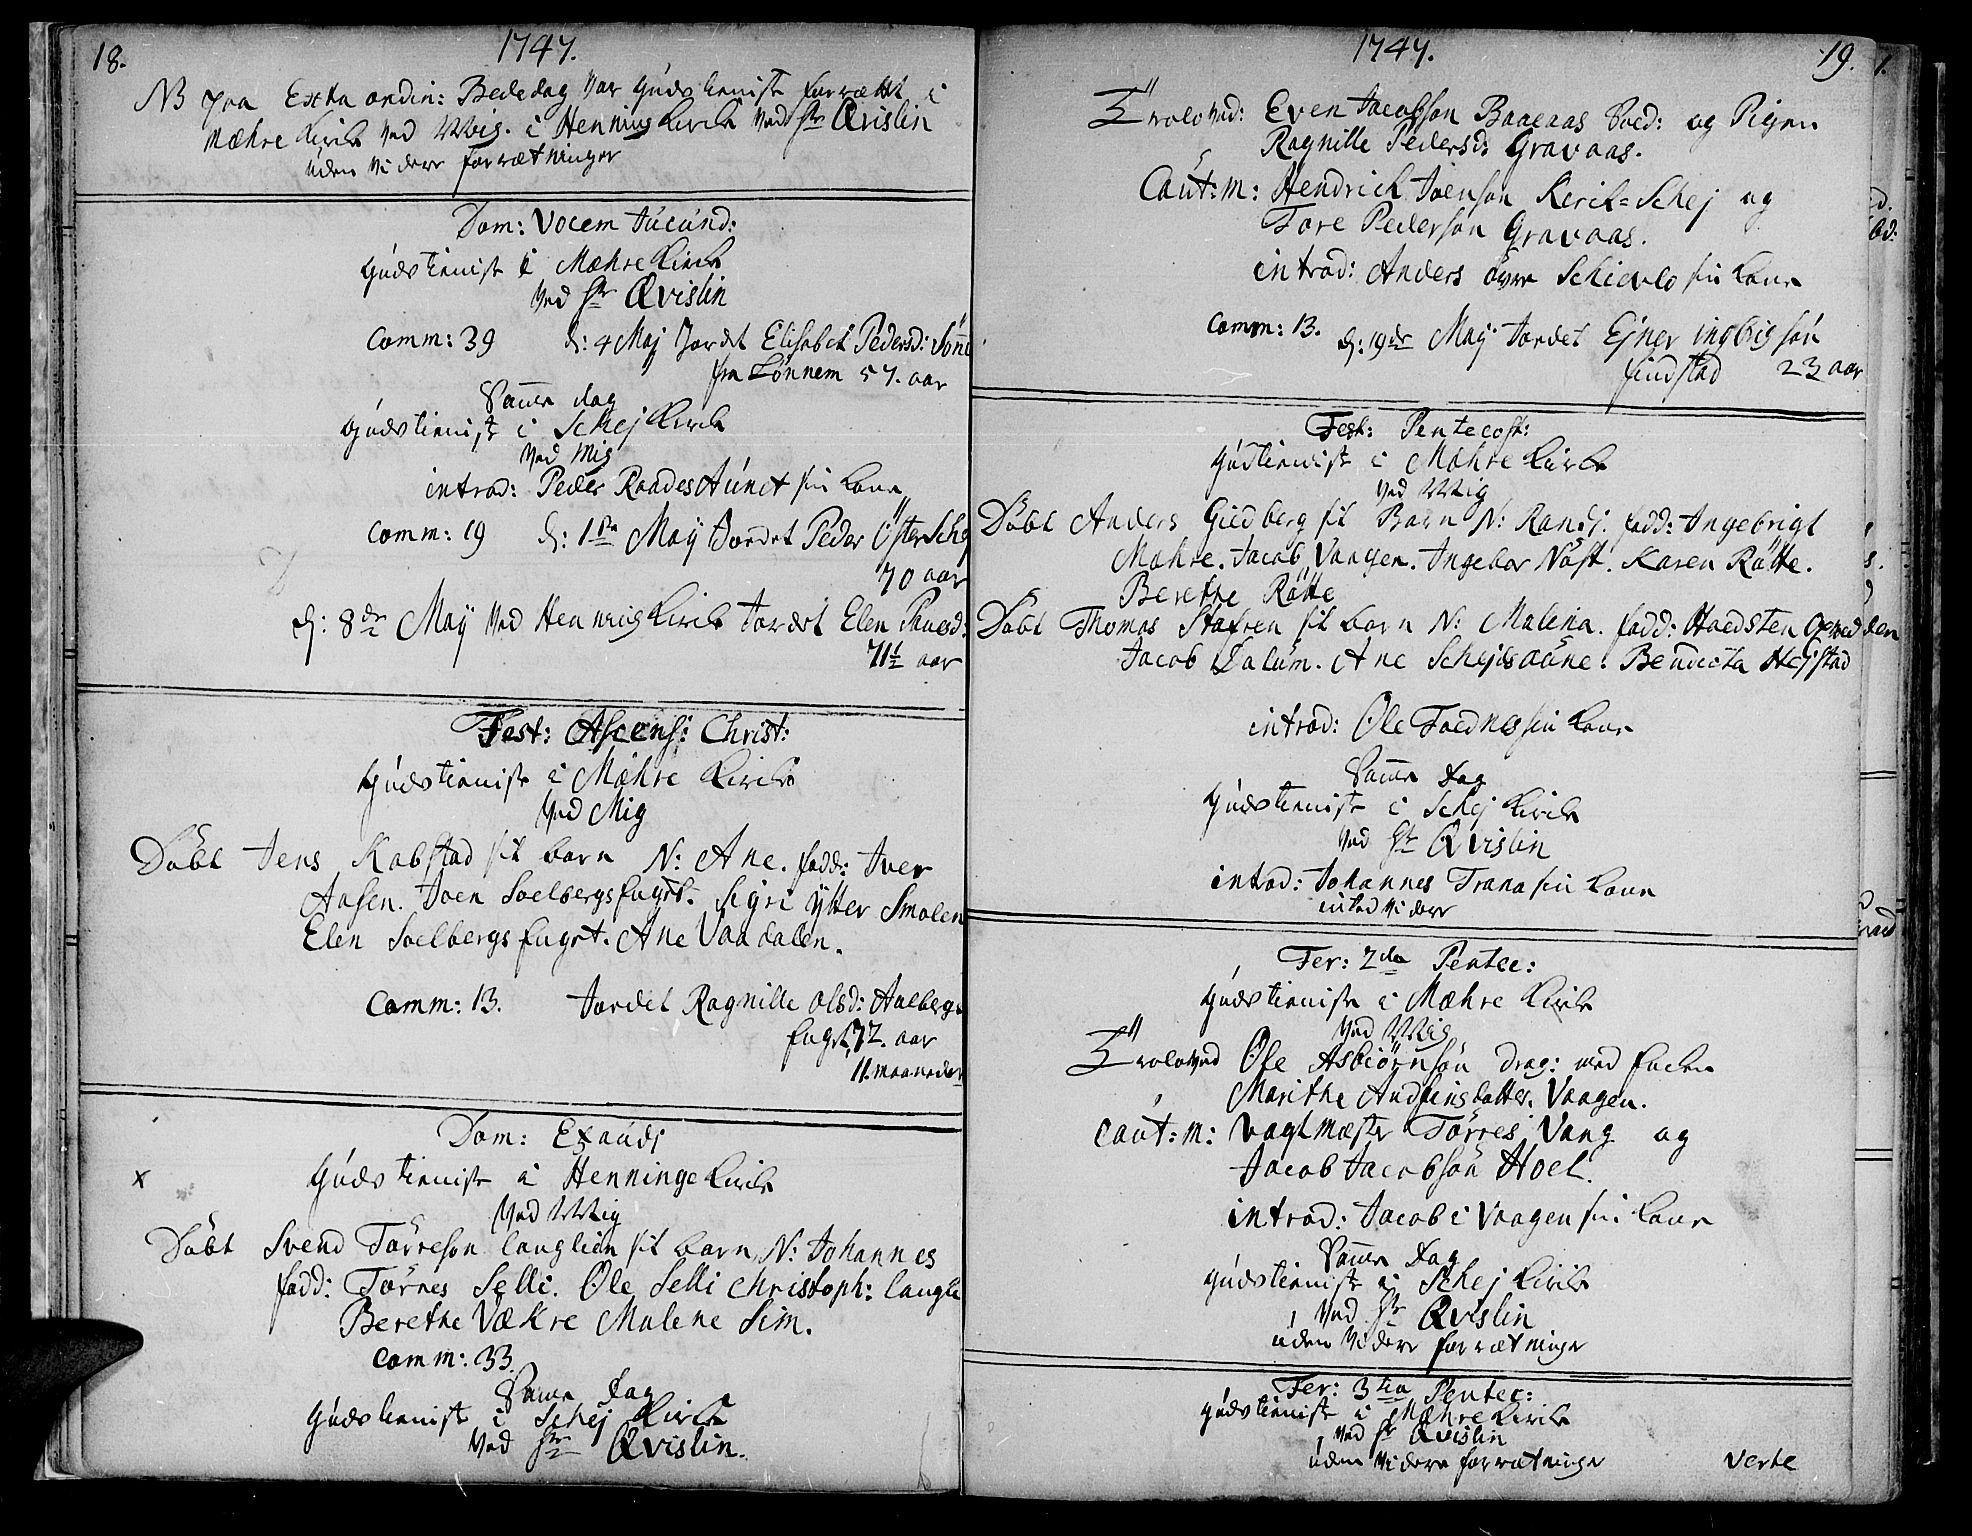 18.
1747.
NB paa Extra ordin: Bededag var Gudstieniste forrættet i
Mæhre Kirck ved Mig. i Henning Kirck ved Hr Qvislin
uden Videre forrætninger
Dom: Vocem Jucund:
Gudstieniste i Mæhre Kirck
Ved Hr Qvislin
Comm: 39 d: 4 Maj Jordet Elisabet Pedersd:
fra Lönnem 57. aar
Samme dag
Gudstieniste i Schej Kirck
Ved Mig
introd: Peder RaadesAunet sin Kone
Comm: 19 d: 1ste Maÿ Jordet Peder ÖsterSchej
70 aar
d: 8de Maÿ Ved Henning Kirck Jordet Elen
71½ aar
Fest: Ascens: Christ:
Gudstieniste i Mæhre Kircke
Ved Mig
Döbt Jens Kabstad sit barn N: Ane. fadd: Iver
Aasen. Joen Soelbergsfuget. Sigri Ytter Smolen
Elen Soelbergsfuget. Ane Vaadalen.
Comm: 13. Jordet Ragnille Olsd: Aalbergs
fuget, 72. aar
11. maaneder
Dom: Exaudj
x Gudstieniste i Henninge Kirck
Ved Mig
Döbt Svend Törreson langlien sit barn, N: Johannes
fadd: Törres Selli. Ole Selli Christoph: langli
Berethe Vækre Malene Sim.
Comm: 33.
Samme dag
Gudstieniste i Schej Kirck
Ved Hr Qvislin.
1747.
19.
Troloved: Even Jacobson Soed: og Pigen
Ragnille Pedersd: Gravaas.
Caut: m: Hendrich Joenson Kirck=Schej og
Tore Pederson Gravaas.
introd: Anders övre Schievlo sin Kone
Comm: 13. d: 19de Maÿ Jordet Ejner ingbrigsön
findstad 23 aar
Fest: Pentecost:
Gudstieniste i Mæhre Kirck
Ved Mig
Döbt Anders Giedberg sit Barn N: Randj. fadd: Ingebrigt
Mæhre. Jacob Vaagen. Ingebor Nöst. Karen Rötte.
Berethe Rötte
Döbt Thomas Stafren sit barn N: Malena. fadd:
Jacob Dalum. Ane Schejsaune. Bendicta Hejstad
introd: Ole Foednes sin Kone
Samme dag
Gudstieniste i Schej Kirck
Ved Hr Qvislin
introd: Johannes Trana sin Kone
intet Videre
Fer: 2da Pentec:
Gudstieniste i Mæhre Kirck
Ved Mig
Trolovved Ole Asbiörnsön drag: med
Marithe Audfinsdatter. Vaagen.
Caut: m: Vagtmester Törres Vang og
Jacob Jacobsön Hoel.
introd: Jacob i Vaagen sin Kone
Samme dag
Gudstieniste i Schej Kirck
Ved Hr Qvislin
uden Videre forrætninger
Fer: 3tia Pentec:
Gudstieniste i Mæhre Kirck
Ved Hr Qvislin
uden Videre forrætninger
Verte